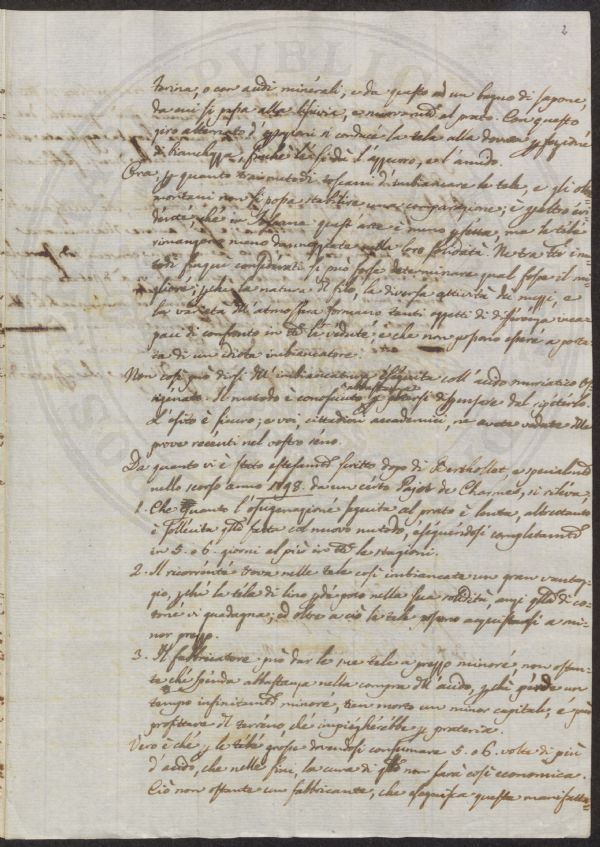 2
farina, o con acidi minerali, e da questo ad un bagno di sapone,
da cui si passa alla lisivia, e nuovamte al prato. Con questo
giro alternato si conduce la tela alla dovuta
di bianchezza, finchè le si dà l'azzurro, e l'amido.
Ora, p quanto trai metodi toscani d'imbiancare le tele, e gli oltra
montani non si possa stabilire una comparazione; è ppaltro evi
dente, che in Toscana quest'arte è meno pfetta, ma le tele
rimangono meno danneggiate nella loro solidità. Ne tra tti i me
todi fra noi considerati si può forse determinare qual fosse il mi
gliore; pche la natura dl filo, la diversa attività dei mezzi, e
la varietà dll'atmosfera formano tanti oggetti di differenza incapaci
di confronto in tte le vedute, e che non possono essere a porta
ta di un idiota imbiancatore.
Non così può dirsi dll'imbiancatura eseguita coll'acido muriatico os
sigenato. Il metodo è conosciuto abbastanza p potersi dispensare del ripeterlo.
L'esito è sicuro; e voi, cittadini accademici, ne avete vedute dlle
prove recenti nel vostro seno.
Da quanto vi è stato estesamte scritto dopo di Berthollet, e specialmte
nello scorso anno 1798. da un certo Pajot de Charmes, si rileva.
1. Che quanto l'operazione eseguita al prato è lenta, altrettanto
è sollecita qlla fatta col nuovo metodo, eseguendosi completamte
in 5. o 6. giorni al più in tte le stagioni.
2. Il ricorrente trova nelle tele così imbiancate un gran vantag-
gio, pchè la tela di lino pde poco nella sua solidità, anzi qlla di co-
tone vi guadagna; ed oltre a ciò le tele possono acquistarsi a mi-
nor prezzo.
3. Il fabbricatore può dar le sue tele a prezzo minore, non ostan-
te che spenda abbastanza nella compra dll'acido, pchè perde un
tempo infinitamte minore, tien morto un minor capitale, e può
profittare dl terreno, che impiegherebbe p prateria.
Vero è che p le tele grosse dovendosi consumare 5. o 6. volte di più
d'acido, che nelle fini, la cura di qlle non sarà così economica.
Ciò non ostante un fabbricante, che eseguisca questa manifattu-